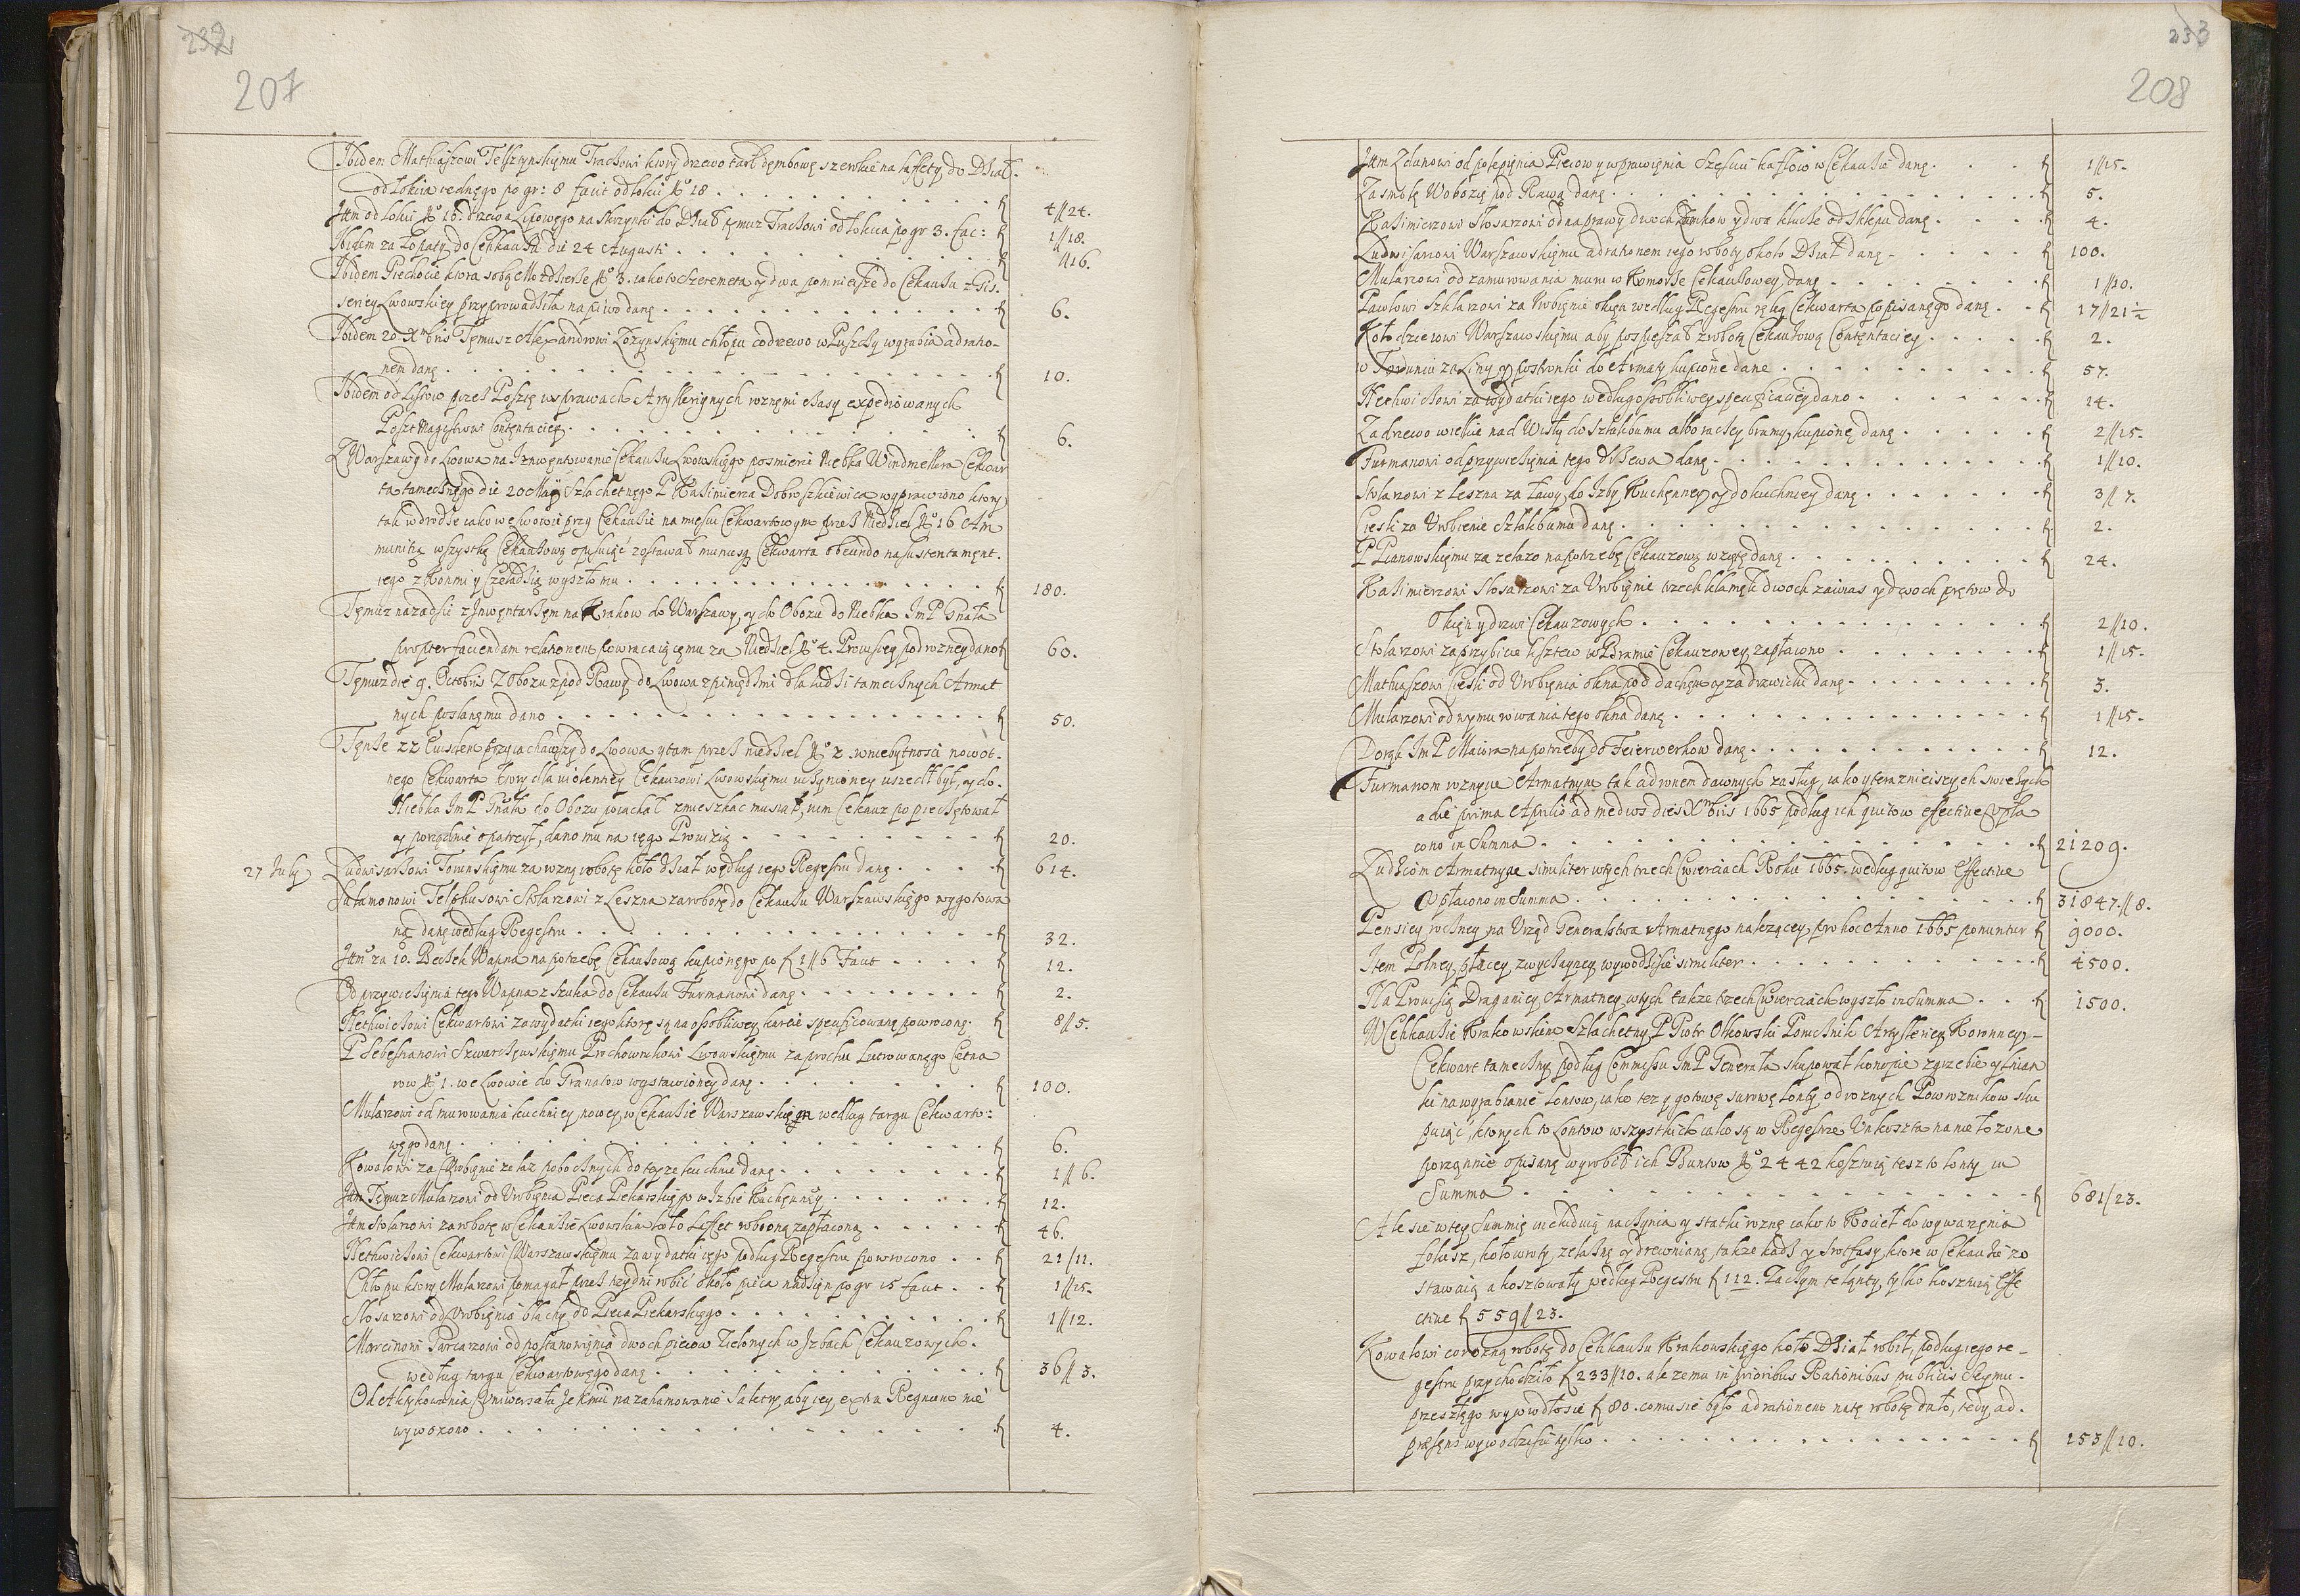 232
207
Ibidem Mathiaszowi Telsztynskięmu Traczowi ktory drzewo tarł dęmbowę szerokie na laffety do Dział
od łokcia iednęgo po gr: 8 facit od łokci No 18 . . . ƒ 4//24.
Ittm od łokci No 16. drzewa Lipowego na skrzynki do Dział tęmuz Traczowi od łokcia po gr 3. fac: ƒ 1//18.
Ibidem za Łopaty do Cekhauzu die 24 Augusti . . . ƒ //16.
Ibidem Piechocie ktora sobą Mozdzierze No 3. iako to Szeremeta y dwa pomnieysze do Cekauzu z Gis-
seriey Lwowskiey przyprowadziła na piwo danę . . . ƒ 6.
Ibidem 20 Xmbris Tęmusz Alexandrowi Łozynskięmu chłopu co drzewo w Puszczy wyrabia ad ratio-
nem danę . . . ƒ 10.
Ibidem od Listow przez Posztę w sprawach Artyllerignych roznęmi czasy expediowanych
Poszt Magistrowi Contęntaciey . . . ƒ 6.
Z Warszawy do Lwowa na Inwęntowanie Cekauzu Lwowskięgo po smierci Niebka Windmillera Cekwar
ta tamecznęgo die 20 Maÿ Szlachetnęgo P Kazimierza Dobroszkiewica wyprawiono ktory
tak w drodze iako we Lwowie przy Cekauzie na mieścu Cekwartowym przez Niedziel No 16 Am
munitią wszystkę Cekauzową opisuiąc zostawał munusq Cekwarta obeundo na sustentamęnt
iego z Konmi y Czeladzią wyszło mu . . . ƒ 180.
Tęmuz nazad zaś z Inwęntarzęm na Krakow do Warszawy, y do Obozu do Niebka Im P Gnała
propter faciendam relationem powracaiącęmu za Niedziel No 4. Prowisiey podrozney dano ƒ 60.
Tęmuz die 9. Octobris Z Obozu z pod Rawy do Lwowa z piniędzmi dla ludzi tamecznych Armat
nych posłanęmu dano . . . ƒ 50.
Tęnze 22 Eiusdem przyiachawszy do Lwowa y tam przez niedziel No 2. w niebytnosci nowot-
nego Cekwarta ktory dla violentiey Cekauzowi Lwowskięmu uczynioney uszedł był, y do
Niebka Im P Gnała do Obozu poiachał zmieszkac musiał, nim Cekauz popieczętował
y porządnie opatrzył, dano mu na tęgo Prowizią . . . ƒ 20.
27 July Ludwisarzowi Torunskięmu za rozną robotę koło dział według iego Regestru danę . . . ƒ 614.
Salamonowi Telphusowi Stolarzowi z Leszna za robotę do Cekauzu Warszawskięgo wygotowa
ną danę według Regestru . . . ƒ 32.
Ittm za 10. Beczek Wapna na potrzebę Cekauzową kupionęgo po ƒ 1//6 Facit . . . ƒ 12.
Od przywiezięnia tego Wapna z Szuka do Cekauzu Furmanowi danę . . . ƒ 2.
Hethwiczowi Cekwartowi za wydatki iego ktorę są na osobliwey karcie specificowanę powrocone. ƒ 8//5.
P Sebestianowi Szwarczęuskięmu Prochownikowi Lwowskięmu za prochu Lutrowanęgo Cetna
row No 1. we Lwowie do Granatow wystawioney danę . . . ƒ 100.
Mularzowi od murowania kuchniey nowey w Cekauzie Warszawskięm według targu Cekwarto-
węgo danę . . . ƒ 6.
Kowalowi za Zrobięnie zelaz pobocznych do teyze kuchnie danę . . . ƒ 1//6.
Ittm Tęmuz Mularzowi od Vrobięnia Pieca Piekarskięgo w Izbie Kuchęnney . . . ƒ 12.
Ittm Stolarzowi za robotę w Cekauzie Lwowskim koło Laffet robioną zapłaconą . . . ƒ 46.
Hethwiczowi Cekwartowi Warszawskięmu za wydatki iego podług Regestru powrocono . . ƒ 21/11.
Chłopu ktory Mularzowi pomagał przez trzy dni robić około pieca na dzięn po gr 15 facit . . ƒ 1//15.
Slosarzowi od Vrobięnia blachy do Pieca Piekarskięgo . . . ƒ 1//12.
Marcinowi Garcarzowi od postanowięnia dwoch piecow Zielonych w Izbach Cekauzowych
według targu Cekwartowęgo danę . . . ƒ 36//3.
Od Aktykowania Vniwersału Je Kmci na zahamowanie Saletry aby iey extra Regnum nie
wywozono . . . ƒ 4.
233
208
Ittm Zdunowi od polepięnia Piecow y wprawięnia Sześciu kaflow w Cekauzie danę . . . ƒ 1//15.
Za smołę W obozię pod Rawą danę . . . ƒ 5.
Kazimierzowi Slosarzowi od naprawy dwoch Zamkow y dwa klucze od Sklepu danę . . . ƒ 4.
Ludwisarzowi Warszawskięmu ad rationem iego roboty około Dział danę . . . ƒ 100.
Mularzowi od zamurowania muru w Komorze Cekauzowey danę . . . ƒ 1//10.
Pawłowi Szklarzowi za Zrobięnie okięn według Regestru ręką Cekwarta popisanęgo danę . . ƒ 17//21½
Kołodzieiowi Warszawskięmu aby pospieszał z robotą Cekauzową Contęntaciey . . . ƒ 2.
w Toruniu za Liny y postronki do Armaty kupione dane . . . ƒ 57.
Hethwiczowi za wydatki iego według osobliwey specificaciey dano . . . ƒ 14.
Za drzewo wielkie nad Wisłą do Szlakbumu albo raczey bramy, kupionę danę . . . ƒ 2//15.
Furmanowi od przywiezięnia tego drzewa danę . . . ƒ 1//10.
Stolarzowi z Leszna za Ławy do Izby Kuchenney y do kuchniey danę . . . ƒ 3//7.
Ciesli za Vrobienie Szlakbumu danę . . . ƒ 2.
P Pianowskięmu za zelazo na potrzebę Cekauzową wziętę danę . . . ƒ 24.
Kazimierzowi Slosarzowi za Vrobięnie trzech klamęk dwoch zawias y dwoch prętow do
Okięn y drzwi Cekauzowych . . . ƒ 2//10.
Stolarzowi za przybicie Lisztew w Bramie Cekauzowey zapłacono . . . ƒ 1//15.
Mathiaszowi Ciesli od Vrobięnia okna pod dachęm y za drzwiczki danę . . . ƒ 3.
Mularzowi od wymurowania tego okna danę . . . ƒ 1//15.
Do rąk Im P Maiora na potrzeby do Feierwerkow danę . . . ƒ 12.
Furmanom roznym Armatnym tak ad rationem dawnych zasług iako y teraznieiszych swiezych
a die prima Aprilis ad medios dies Xmbris 1665 podług ich quitow effective Vpła
cono in Summa . . . ƒ 21209.
Ludziom Armatnym similiter w tych trzech Cwierciach Roku 1665. według quitow Effective
Vpłacono in Summa . . . ƒ 31847.//8.
Pensiey roczney na Vrząd Generalstwa Armatnęgo nalezącey, pro hoc Anno 1665 ponuntur ƒ 9000.
Item Polney płacey zwyczayney wywodzi się similiter . . . ƒ 4500.
Na Prowisią Draganiey Armatney w tych takze trzech Cwierciach wyszło in Summa . . . ƒ 1500.
W Cekhauzie Krakowskim Szlachetny P Piotr Olkowski Porucznik Artylleriey Koronney
Cekwart tameczny podług Commissu Im P Generała skupował konopie zgrzebie y Lnian
ki na wyrabianie Lontow, iako tez y gotowę surowę Lonty od roznych Powroznikow sku
puiąc, ktorych to Lontow wszystkich iako są w Regestrze Vnkoszta na nie łozone
porządnie opisanę wyrobił ich Buntow No 2442 kosztuią tesz to Lonty in
Summa . . . ƒ 681/23.
Ale sie w tey Summię includuią naczynia y statki roznę iako to Kocieł do wywarzęnia
folusz, kołowroty, zelaznę y drewnianę, takze kadz y srotfasy, ktore w Cekauzie zo
stawaią a kosztowały według Regestru ƒ 122. Zaczym te Lonty tylko kosztuią Effe
ctive ƒ 559//23.
Kowalowi co rozną robotę do Cekhauzu Krakowskięgo koło Dział robił, podług iego re-
gestru przychodziło ƒ 233//10. ale ze mu in prioribus Rationibus publicis Seymu
przeszłęgo wywiodło się ƒ 80. co mu się było ad rationem na tę robotę dało, tedy ad
præsens wywodzi się tylko . . . ƒ 153//10.